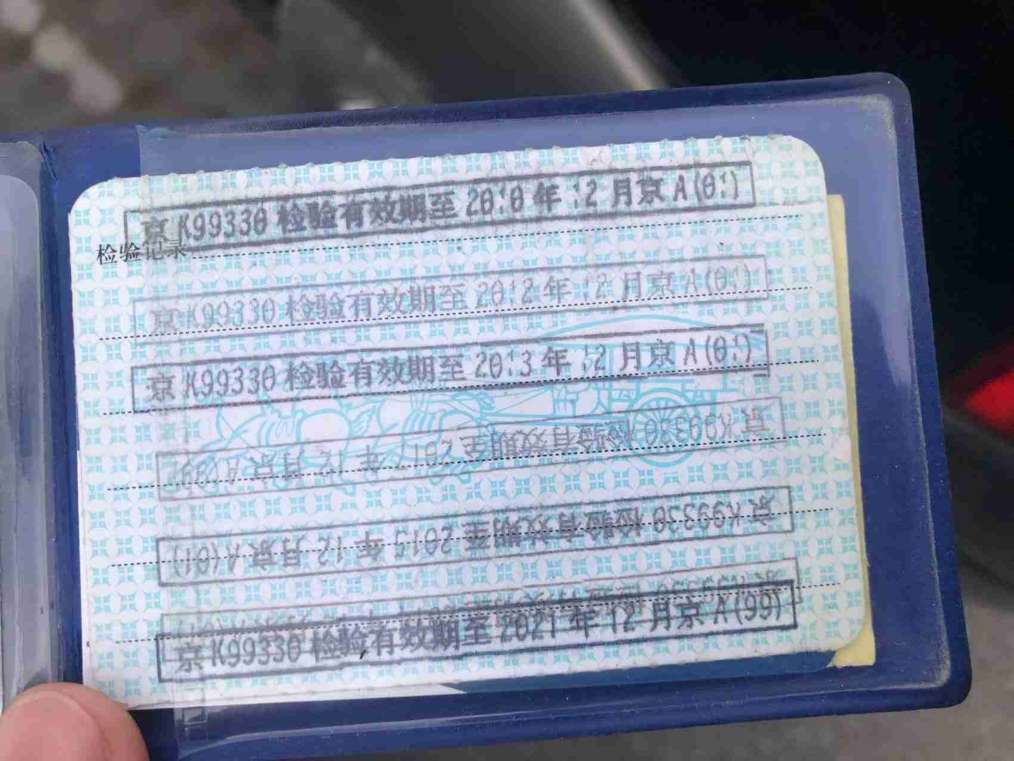 京 K99330 检验有效期至 2010 年 12 月京 A(01)
检验记录
京 K99330 检验有效期至 2012 年 12 月京 A(01)
京 K99330 检验有效期至 2013 年 12 月京 A(01)
京 K99330 检验有效期至 2017 年 12 月京 A(99)
京 K99330 检验有效期至 2015 年 12 月京 A(01)
京 K99330 检验有效期至 2021 年 12 月京 A(99)